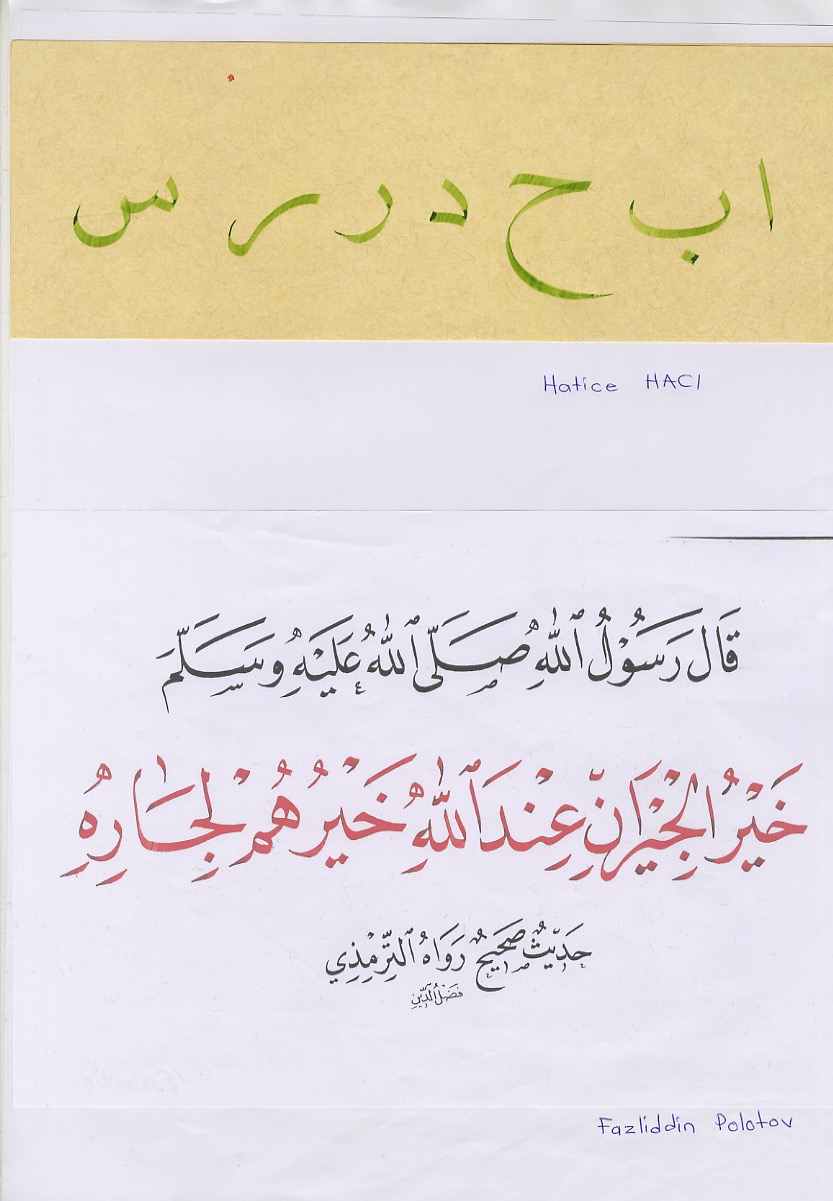 ا ب ح د ر ر س
Hatice HACI
قَالَ رَسُوْلُ اللهِ صَلَّى اللهُ عَلَيْهِ وَسَلَّمَ
خَيْرُ الْجِيْرَانِ عِنْدَ اللهِ خَيْرُهُمْ لِجَارِهِ
حَدِيْثٌ صَحِيْحٌ رَوَاهُ التِّرْمِذِي
فَضْلُ الدِّينِ
Fazliddin Polotov